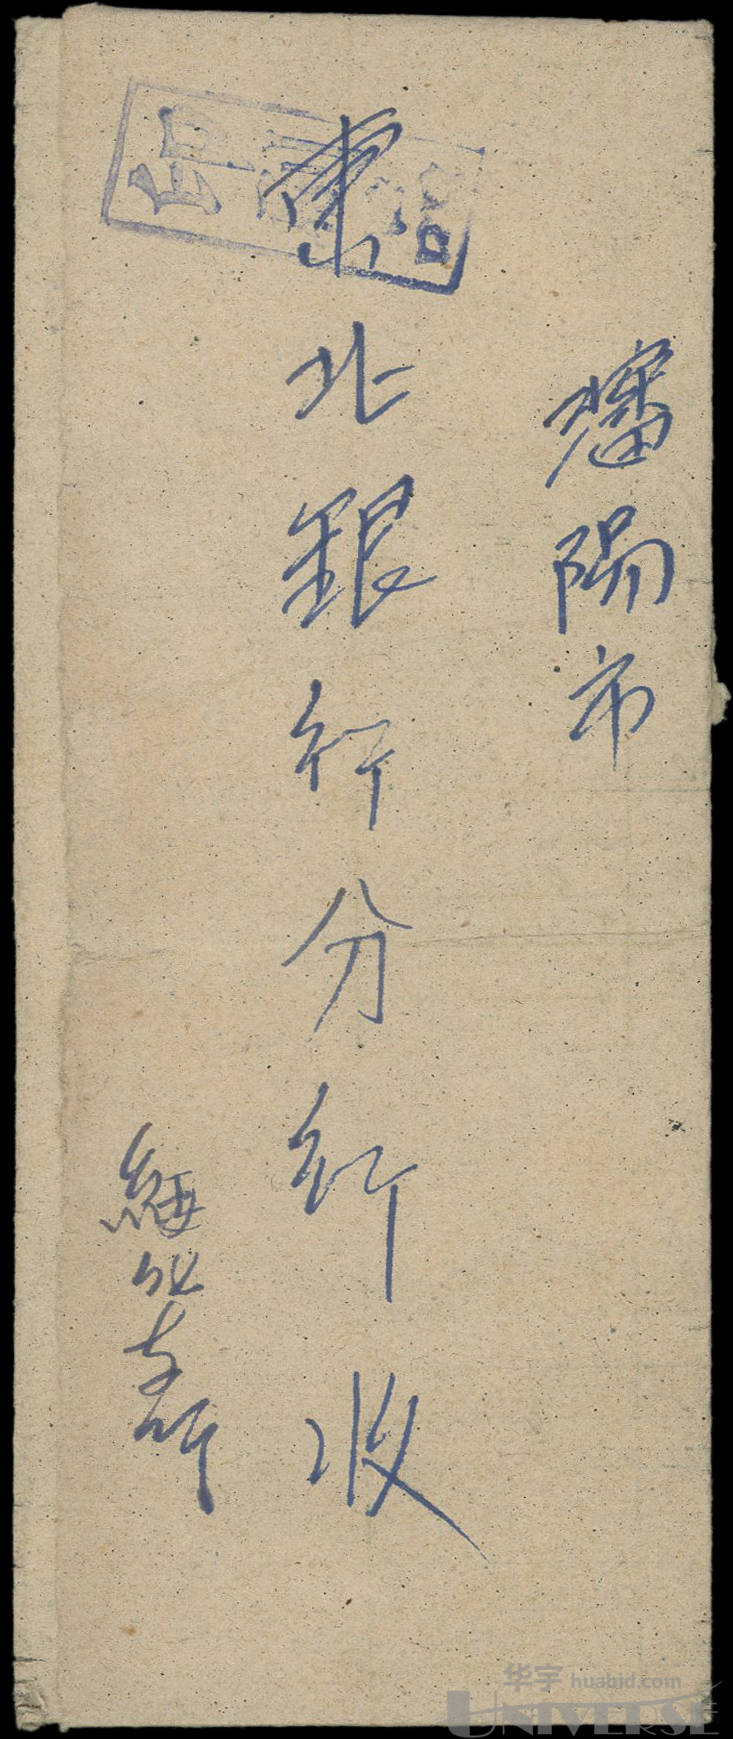 瀋陽市
東北銀行分行收
綏化支行
华宇 huabid.com
UNIVERSE